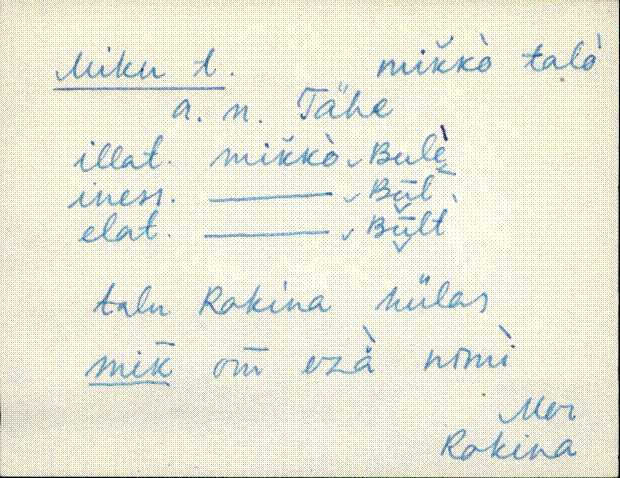 Miku t. mik̆kò talò
a. n. Tähe
illat. mik̆kò, Bulè
iness. ——— , Būl
elat. ——— , Būlt
talu Rakina külas
mik̄ om̄ ezà nimì
Mar
Rakina